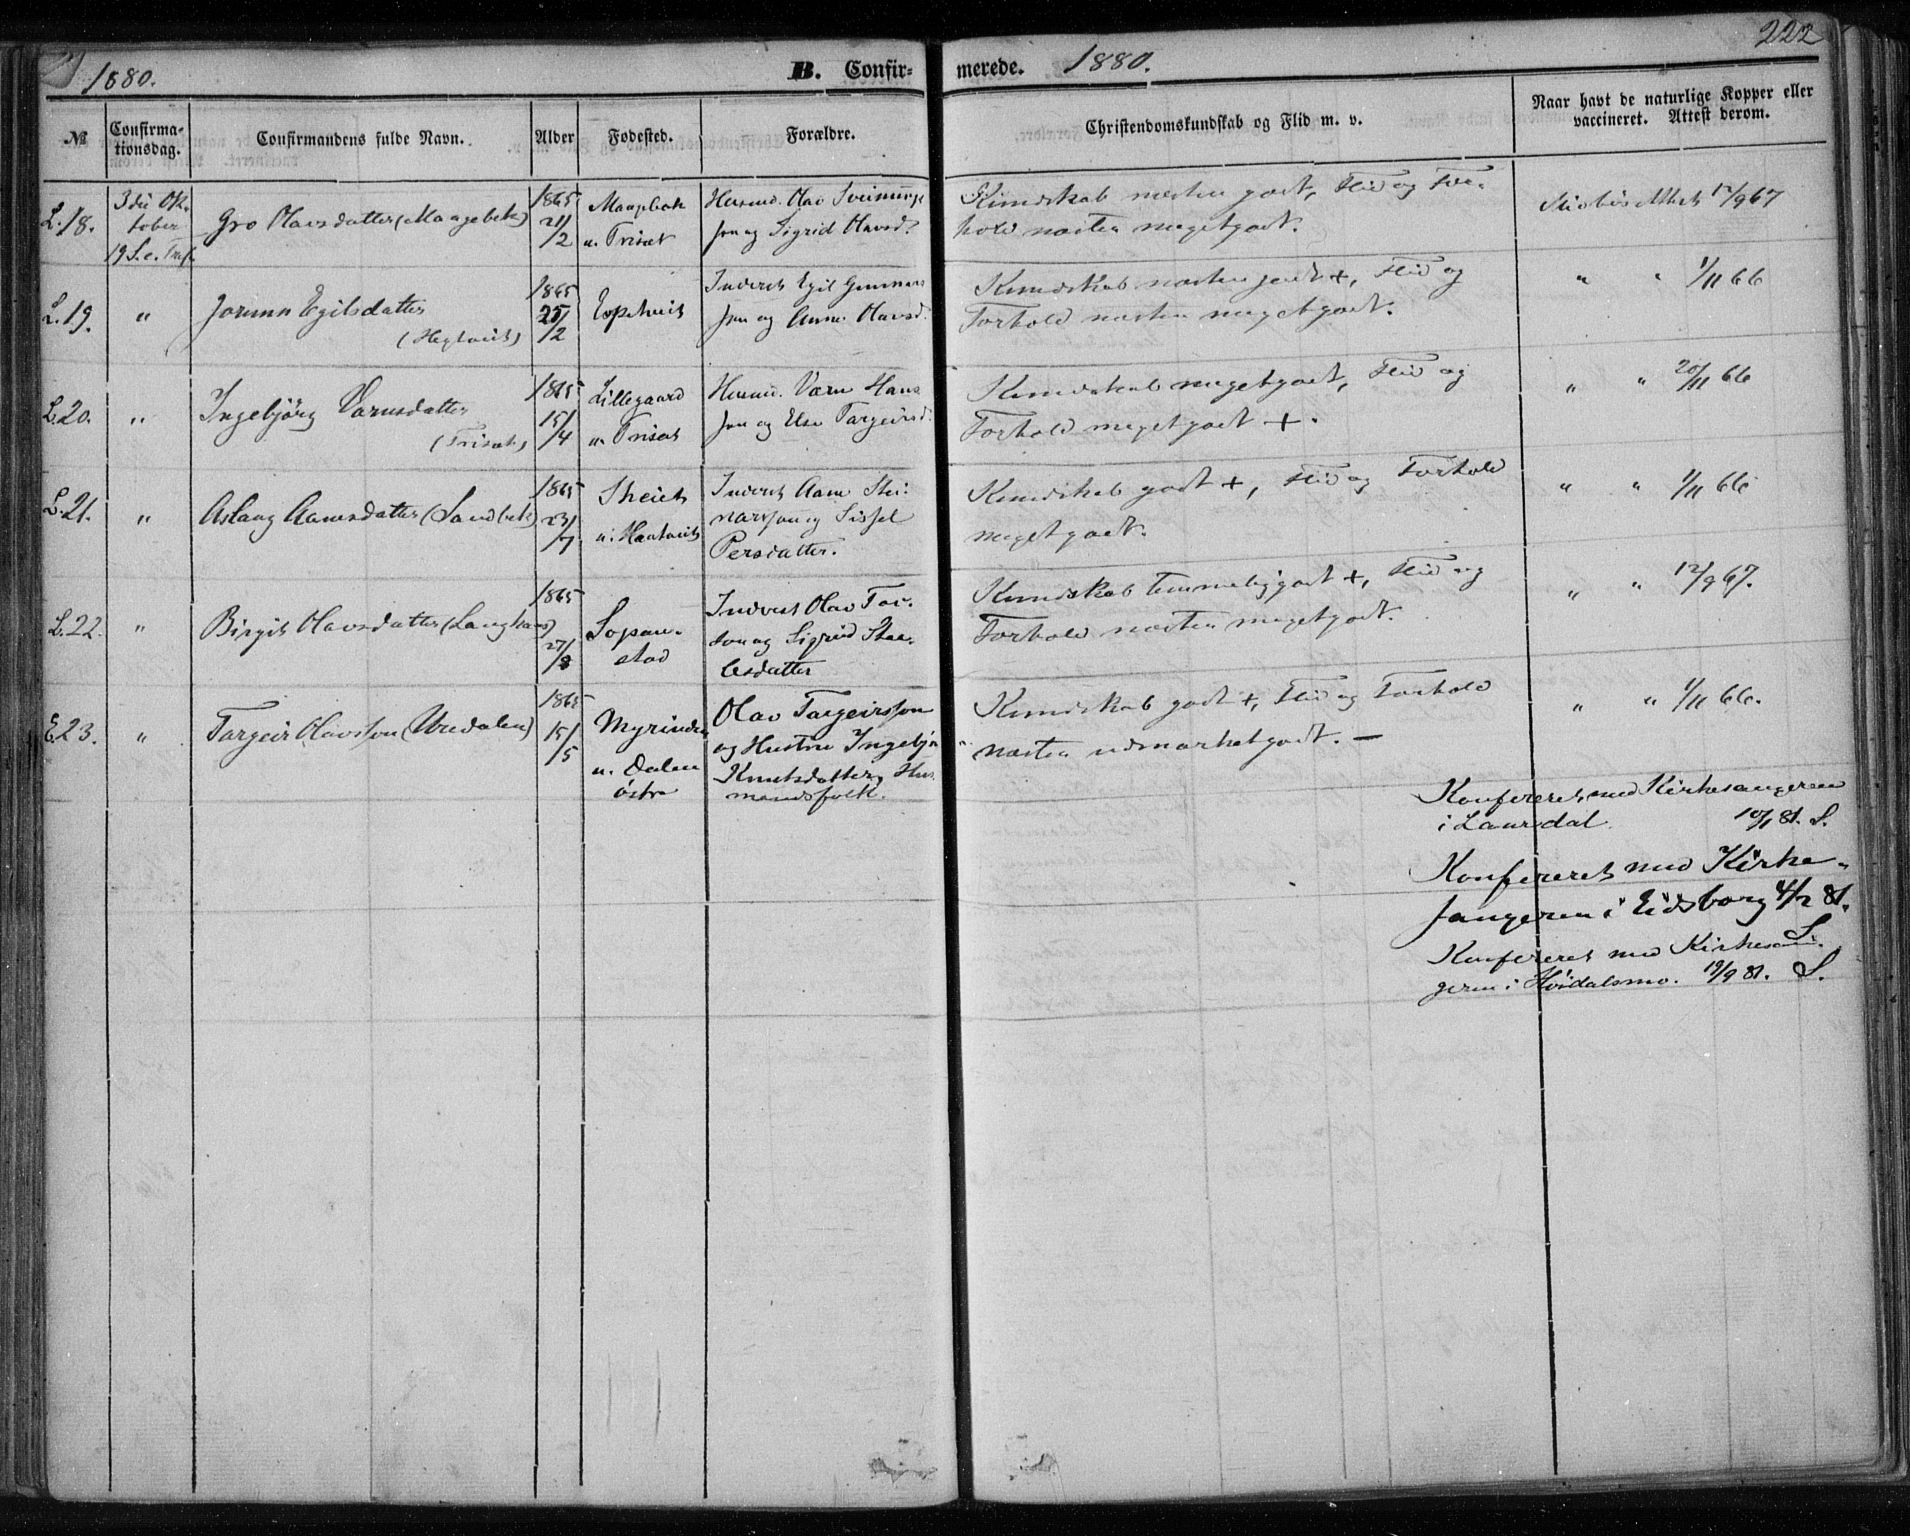 222
1880.
B. Confirmerede. 1880.
№
Confirmationsdag.
Confirmandens fulde Navn.
Alder
Fødested.
Forældre.
Christendomskundskab og Flid m. v.
Naar havt de naturlige Kopper eller
vaccineret. Attest derom.
L.18.
3die Ok-
tober
19 S. e. Tref.
Gro Olavsdatter (Maagebek)
1865
21/2
u. Trisæt
Husmd. Olav Sveinungs-
son og Sigrid Olavsd.
Kundskab næsten godt, Flid og For-
hold næsten megetgodt.
Attest 12/9 67
L.19.
"
Jorunn Egilsdatter
(Hegtveit)
1865
25/2
Espetveit
Inderst Egil Gunnars-
son og Anne Olavsd.
Kundskab næsten godt +, Flid og
Forhold næsten megetgodt.
" " 1/11 66
L.20.
"
IngebjörgVærnsdatter
(Trisæt)
1865
15/4
Lillegaard
u. Trisæt
Husmd. Værn Hans-
son og Else Targeirsd.
Kundskab megetgodt, Flid og
Forhold megetgodt +.
" " 20/11 66
L.21.
"
Aslaug Aanensdatter (Sandbek)
1865
23/7
u. Haatveit
Inderst Aane Stei-
narson og Sissel
Persdatter.
Kundskab godt +, Flid og Forhold
megetgodt.
" " 1/11 66
L.22.
"
Birgit Olavsdatter
1865
27/8
Inderst Olav Tor-
son og Sigrid
Kundskab temmeliggodt +, Flid og
Forhold næsten megetgodt.
" " 12/9 67.
E.23.
"
Targeir Olavsson (Uvedalen)
1865
15/5
u. Dalen
östre
Olav Targeirsson
og Hustru Ingebjör
Knutsdatter, Hus-
mandsfolk.
Kundskab godt +, Flid og Forhold
næsten udmærketgodt. —
" " 1/11 66.
Konfereret med Kirkesangeren
i Laurdal 10/1 81. S.
Konfereret med Kirke-
sangeren i Eidsborg 4/2 81.
S.
Konfereret med Kirkesan-
geren i Höidalsmo. 19/9 81. S.